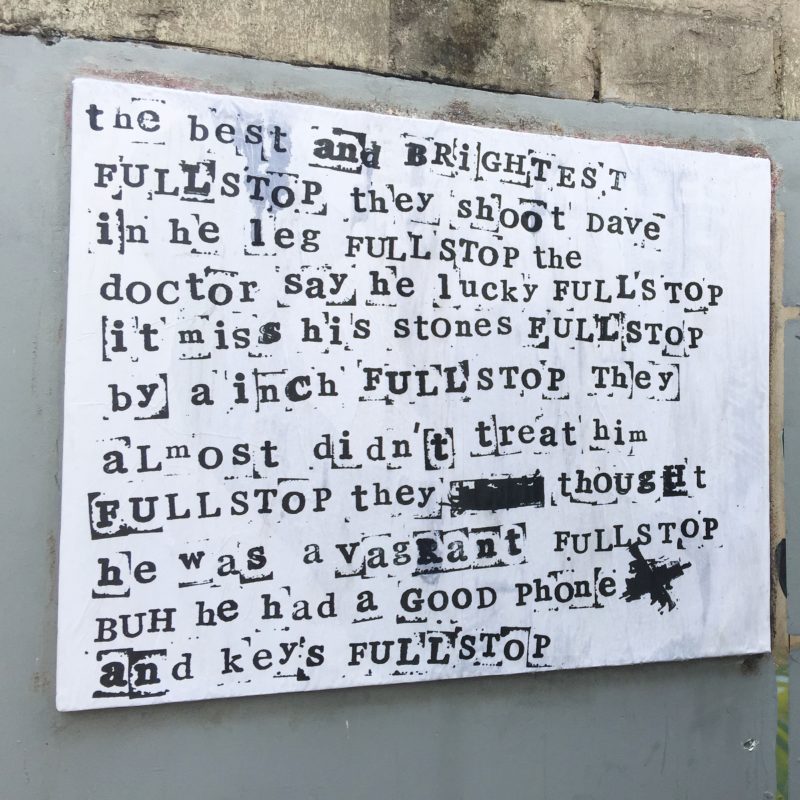 the best and BRiGHTEST
FULLSTOP they shoot Dave
in he leg FULLSTOP the
doctor say he lucky FULLSTOP
it miss his stones FULLSTOP
by a inch FULLSTOP They
aLmost didn't treat him
FULLSTOP they thougHt
he was a vagRant FULLSTOP
BUH he had a GOOD Phone
and key's FULLSTOP